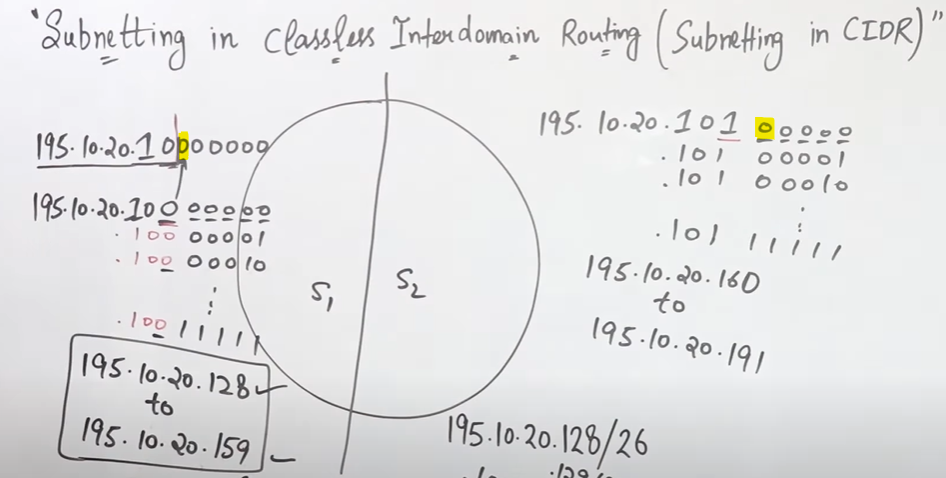 "Subnetting in Classless Interdomain Routing (Subnetting in CIDR)"
195.10.20.10000000
195.10.20.100 00000
.100 00001
.100 00010
⋮
.100 11111
195.10.20.128
to
195.10.20.159
S1
S2
195.10.20.101 00000
.101 00001
.101 00010
⋮
.101 11111
195.10.20.160
to
195.10.20.191
195.10.20.128/26